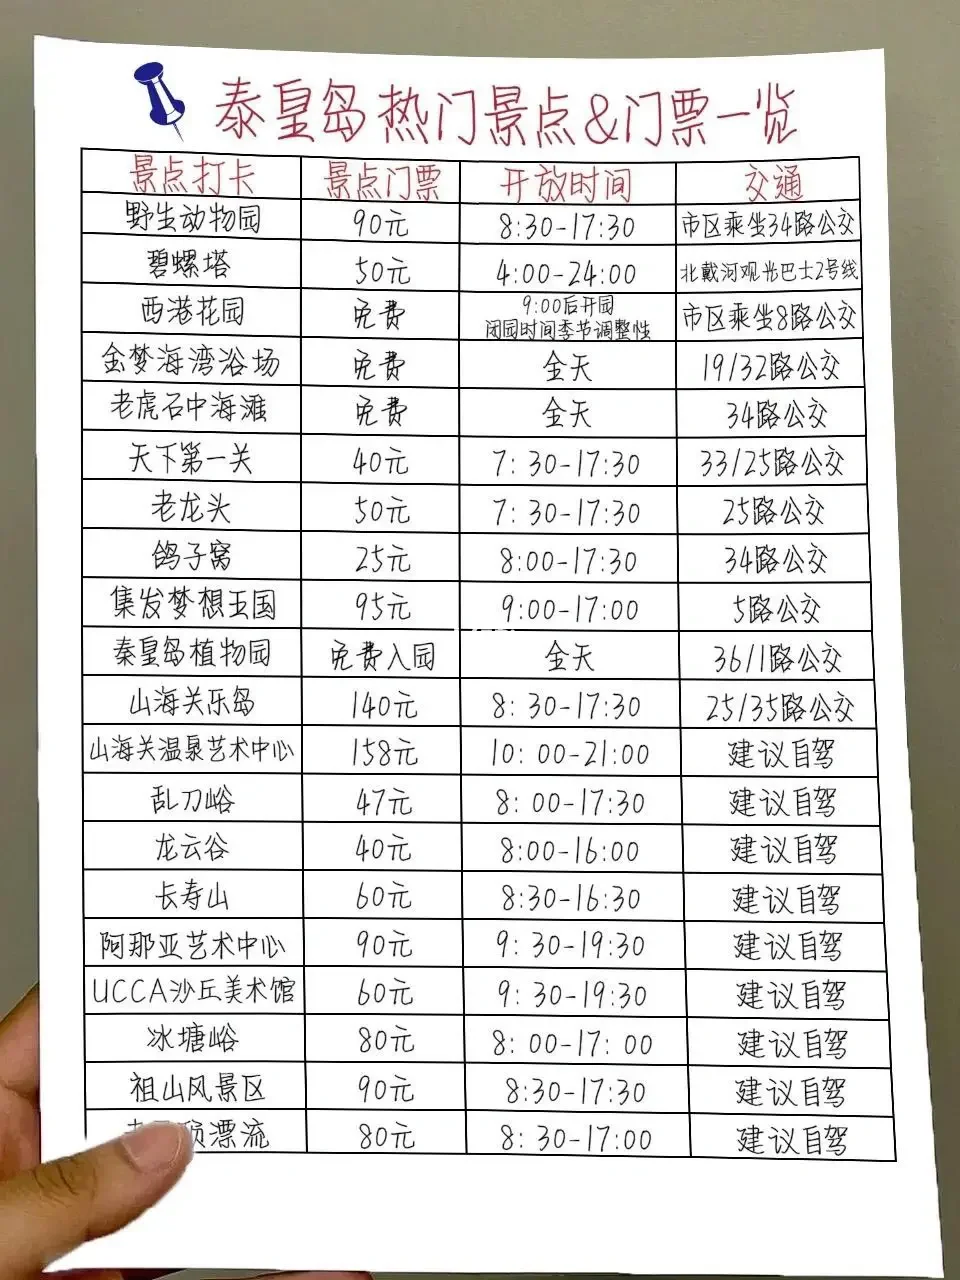 泰皇岛热门景点&门票一览
景点打卡 景点门票 开放时间 交通
野生动物园 90元 8:30-17:30 市区乘坐34路公交
碧螺塔 50元 4:00-24:00 北戴河观光巴士2号线
西港花园 免费 9:00后开园 闭园时间季节调整性 市区乘坐8路公交
金梦海湾浴场 免费 全天 19/32路公交
老虎石中海滩 免费 全天 34路公交
天下第一关 40元 7:30-17:30 33/25路公交
老龙头 50元 7:30-17:30 25路公交
鸽子窝 25元 8:00-17:30 34路公交
集发梦想王国 95元 9:00-17:00 5路公交
秦皇岛植物园 免费入园 全天 36/1路公交
山海关乐岛 140元 8:30-17:30 25/35路公交
山海关温泉艺术中心 158元 10:00-21:00 建议自驾
乱刀峪 47元 8:00-17:30 建议自驾
龙云谷 40元 8:00-16:00 建议自驾
长寿山 60元 8:30-16:30 建议自驾
阿那亚艺术中心 90元 9:30-19:30 建议自驾
UCCA沙丘美术馆 60元 9:30-19:30 建议自驾
冰塘峪 80元 8:00-17:00 建议自驾
祖山风景区 90元 8:30-17:30 建议自驾
漂流 80元 8:30-17:00 建议自驾